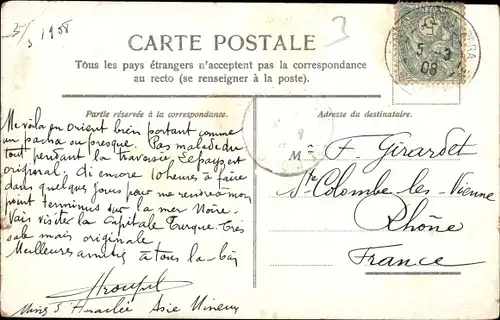 5/3 1908
3
CARTE POSTALE
Tous les pays étrangers n'acceptent pas la correspondance
au recto (se renseigner à la poste).
5 -3
08
Partie réservée à la correspondance.
Adresse du destinataire.
Me voila en orient bien portant comme
un pacha ou presque. Pas malade du
tout pendant la traversée. Le pays est
original. di encore 10 heures à faire
dans quelques jours pour me rendre à mon
point terminus sur la mer Noire.
Vais visiter la Capitale Turque. Très
sale mais originale.
Meilleures amitiés à tous là-bas
Mines d'Heraclée Asie Mineure
M F. Girardet
Ste Colombe les Vienne
Rhône
France